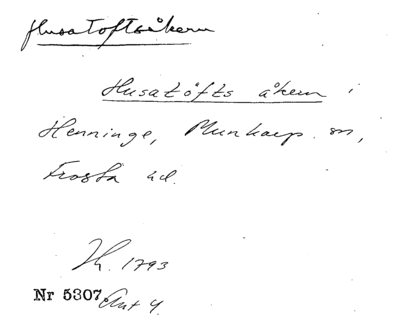 Husatoftsåkern
Husatöfts åkern i
Henninge, Munkarp sn,
Frosta hd.
Jh. 1793
Nr 5307 Ant 4.